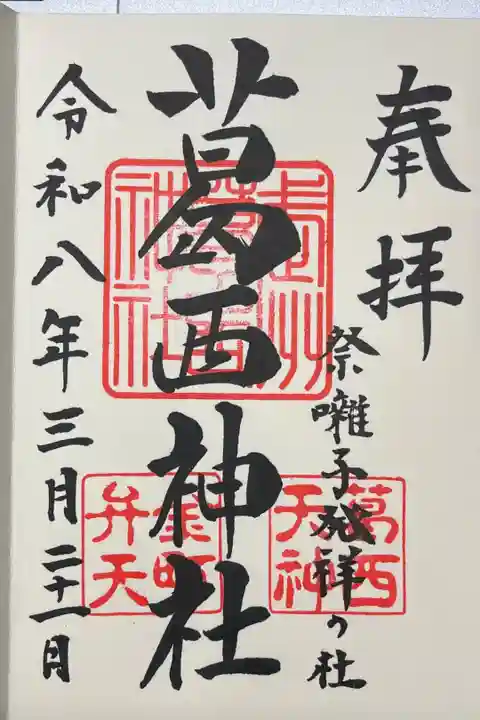 奉拝
祭囃子発祥の社
葛西神社
令和八年三月二十一日
葛西
神社
葛西
天神
金町
弁天